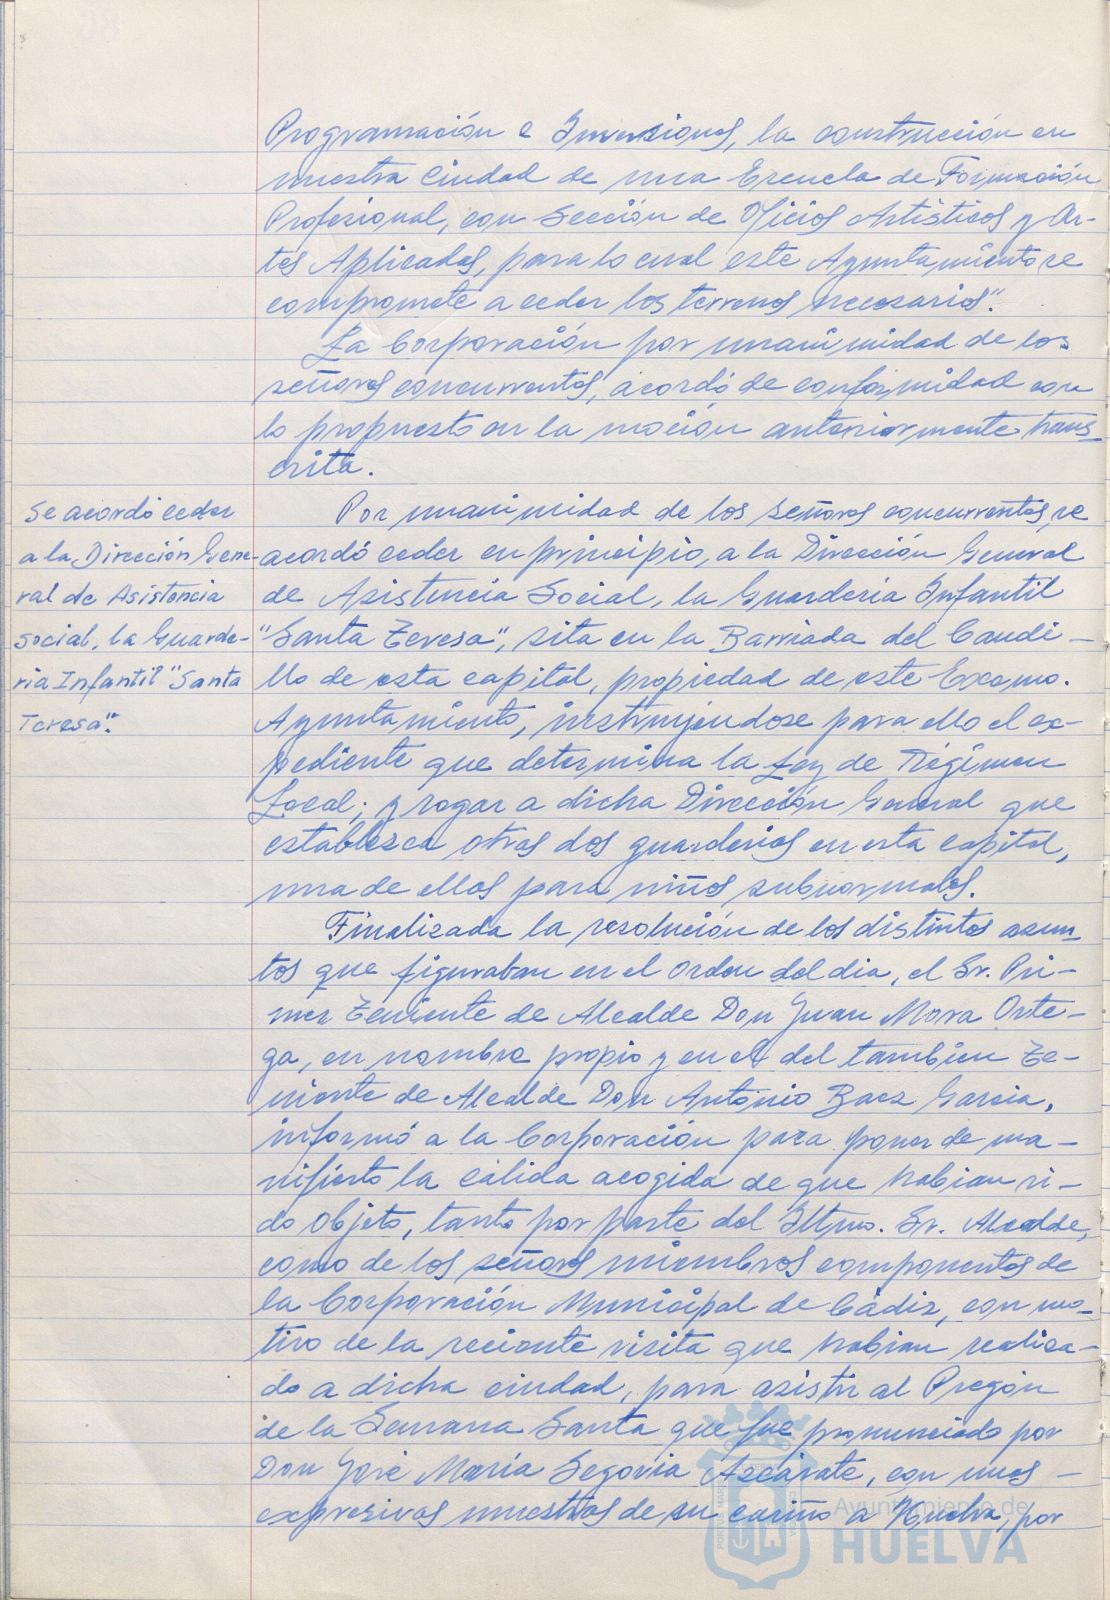 Programación e Inversiones, la construcción en
nuestra Ciudad de una Escuela de Formación
Profesional, con Sección de Oficios Artísticos y Ar-
tes Aplicadas, para lo cual este Ayuntamiento se
compromete a ceder los terrenos necesarios".
La Corporación por unanimidad de los
señores concurrentes, acordó de conformidad con
lo propuesto en la moción anteriormente trans-
crita.
Se acordó ceder
a la Dirección Gene-
ral de Asistencia
Social, la Guarde-
ria Infantil "Santa
Teresa".
Por unanimidad de los señores concurrentes, se
acordó ceder en principio, a la Dirección General
de Asistencia Social, la Guarderia Infantil
"Santa Teresa", sita en la Barriada del Caudi-
llo de esta capital, propiedad de este Excmo.
Ayuntamiento, instruyéndose para ello el ex-
pediente que determina la Ley de Régimen
Local; y rogar a dicha Dirección General que
establezca otras dos guarderias en esta capital,
una de ellas para niños subnormales.
Finalizada la resolución de los distintos asun-
tos que figuraban en el orden del dia, el Sr. Pri-
mer Teniente de Alcalde Don Juan Mora Orte-
ga, en nombre propio y en el del tambien Te-
niente de Alcalde Don Antonio Baez Garcia,
informó a la Corporación para poner de ma-
nifiesto la cálida acogida de que habian si-
do objeto, tanto por parte del Iltmo. Sr. Alcalde,
como de los señores miembros componentes de
la Corporación Municipal de Cádiz, con mo-
tivo de la reciente visita que habian realiza-
do a dicha ciudad, para asistir al Pregón
de la Semana Santa que fue pronunciado por
Don José María Segovia Azcárate, con unas
expresivas muestras de su cariño a Huelva, por
Ayuntamiento de
HUELVA